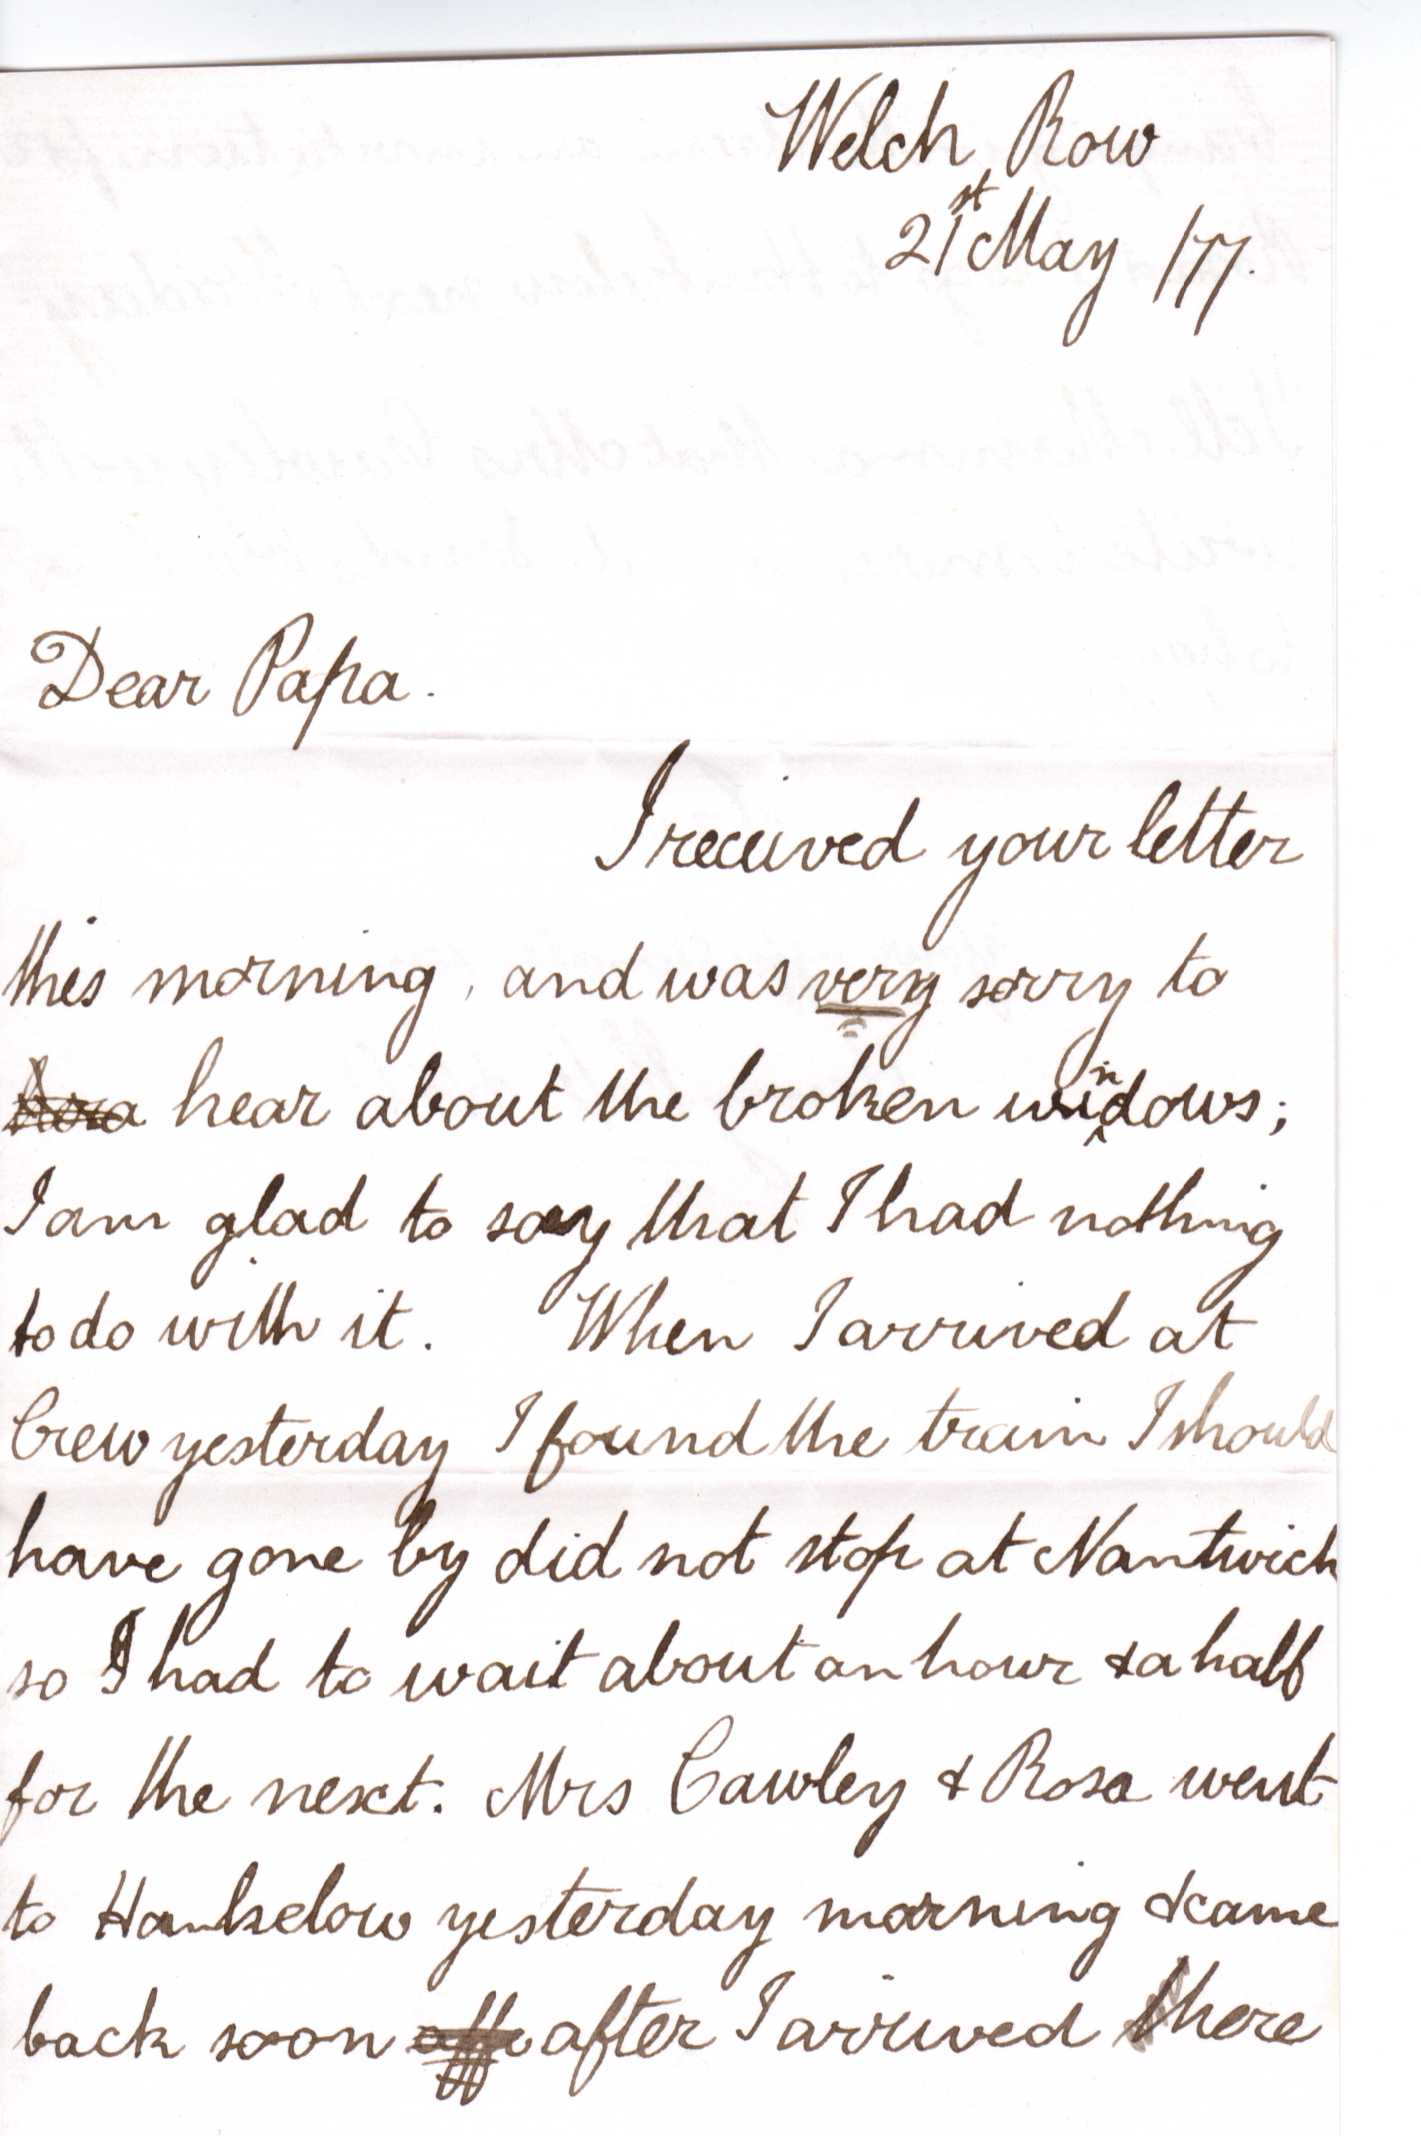 Welch Row
21st May /77.
Dear Papa.
I received your letter
this morning, and was very sorry to
hear about the broken windows;
I am glad to say that I had nothing
to do with it. When I arrived at
Crew yesterday I found the train I should
have gone by did not stop at Nantwich
so I had to wait about an hour & a half
for the next. Mrs Cawley & Rosa went
to Hankelow yesterday morning & came
back soon after I arrived there